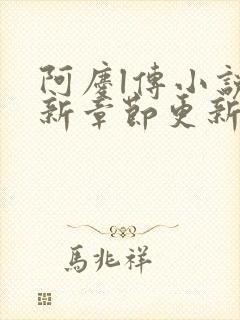 阿麐l傳小説
新章節更新
馬兆祥